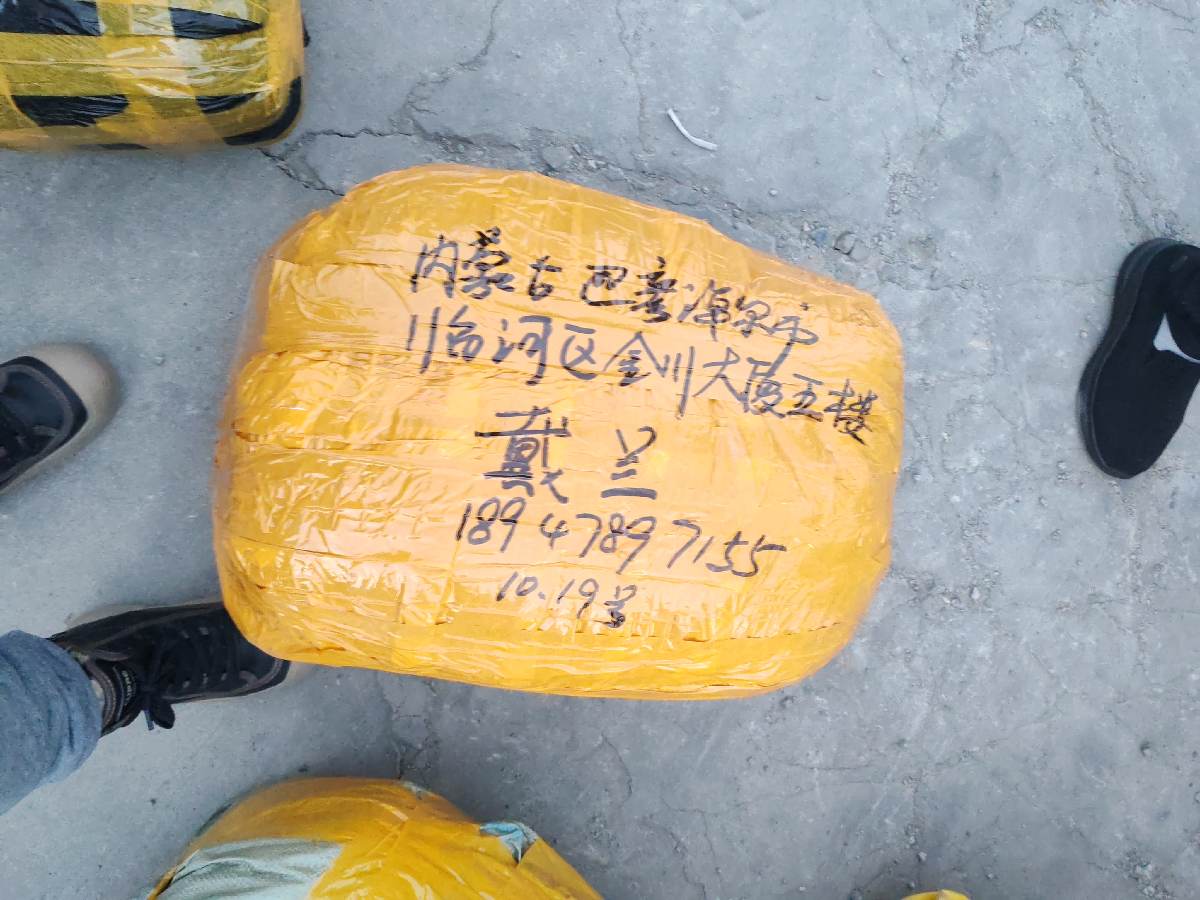 内蒙古巴彦淖尔市
临河区金川大厦五楼
戴兰
18947897155
10.19号